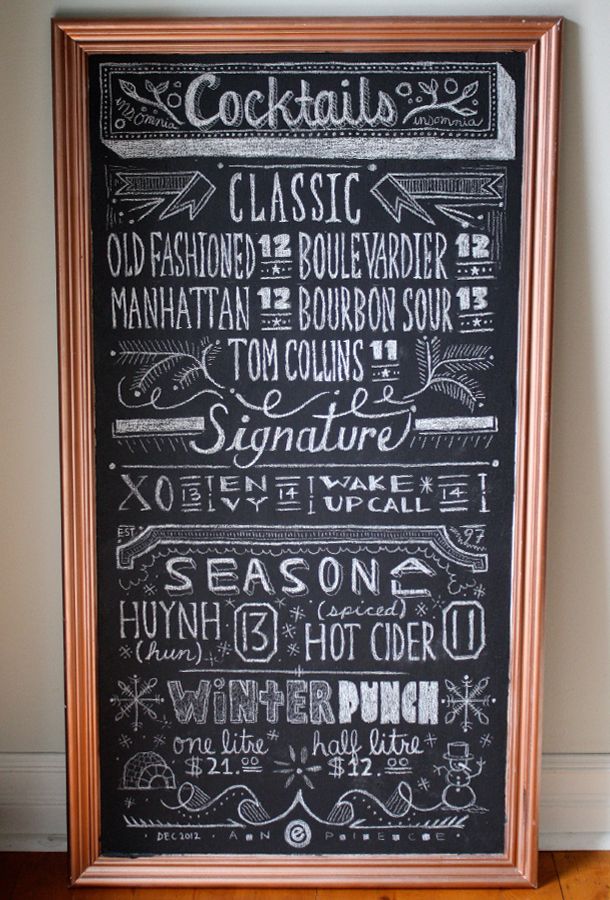 insomnia Cocktails insomnia
CLASSIC
OLD FASHIONED 12 BOULEVARDIER 12
MANHATTAN 12 BOURBON SOUR 13
TOM COLLINS 11
Signature
XO 13 ENVY 14 WAKE UP CALL 14
EST 97
SEASONAL
HUYNH 13 (spiced)
(hun) HOT CIDER 11
WINTER PUNCH
one litre half litre
$21.00 $12.00
DEC 2012 · ANN e